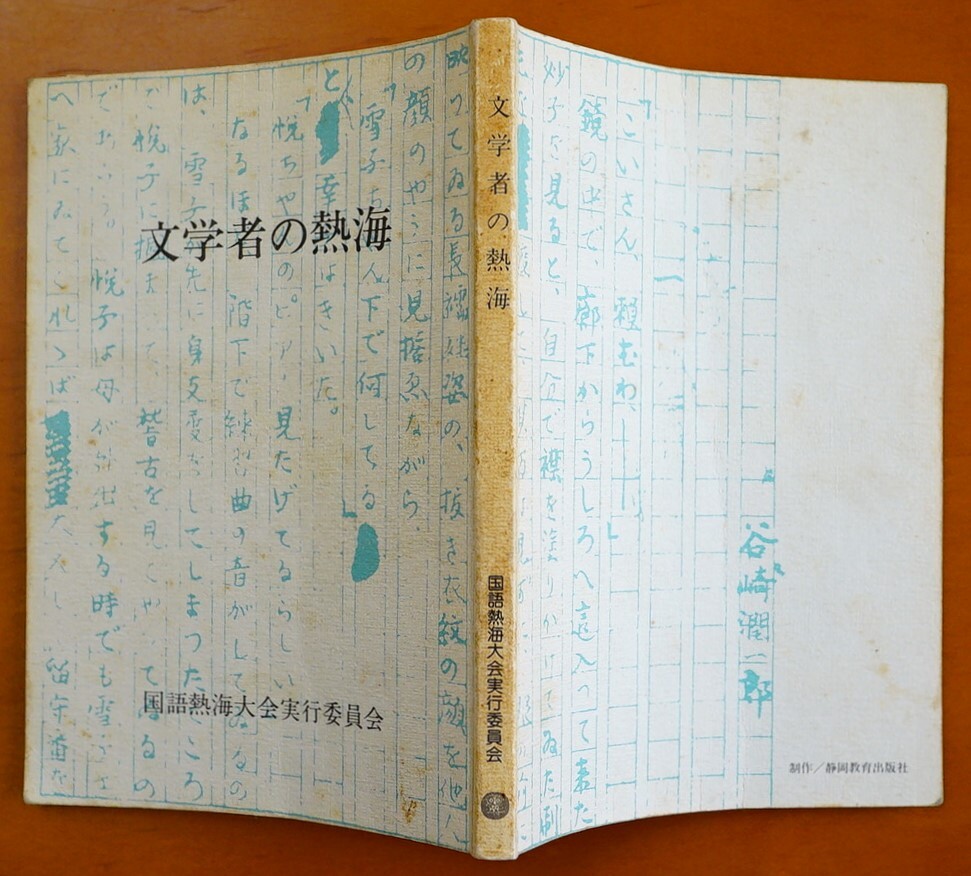 文学者の熱海
国語熱海大会実行委員会
文学者の熱海
国語熱海大会実行委員会
制作／静岡教育出版社
谷崎潤一郎
「こいさん、頼むわ。――」
鏡の中で、廊下からうしろへ這入って来た
妙子を見ると、自分で襟を塗りかけてゐた刷
映つてゐる長襦袢姿の、抜き衣紋の顔を他人
の顔のやうに見据ゑながら、
「雪子ちやん下で何してる」
と、幸子はきいた。
「悦ちやんのピアノ見たげてるらしい」
なるほど、階下で練習曲の音がしてゐるの
は、雪子が先に身支度をしてしまつたところ
で悦子に掴まつて、稽古を見てやつてゐるの
であらう。悦子は母が外出する時でも雪子さ
へ家にゐてくれゝば大人しく留守番を